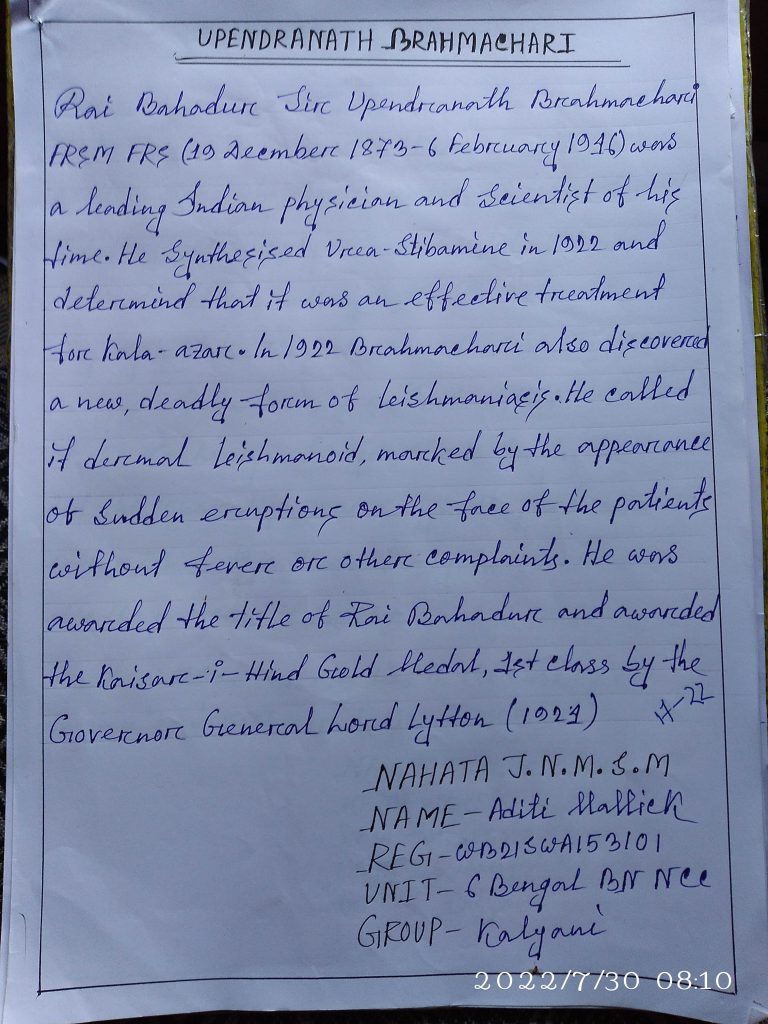 UPENDRANATH BRAHMACHARI
Rai Bahadur Sir Upendranath Brahmachari
FRSM FRS (19 December 1873-6 February 1946) was
a leading Indian physician and Scientist of his
time. He Synthesised Urea-Stibamine in 1922 and
determind that it was an effective treatment
for Kala-azar. In 1922 Brahmachari also discovered
a new, deadly form of leishmaniasis. He called
it dermal leishmanoid, marked by the appearance
of Sudden eruptions on the face of the patients
without fever or other complaints. He was
awarded the title of Rai Bahadur and awarded
the Kaisar-i-Hind Gold Medal, 1st class by the
Governor General Lord Lytton (1921)
H-22
NAHATA J.N.M.S.M
NAME-Aditi Mallick
REG-WB21SWA153101
UNIT-6 Bengal BN NCC
GROUP-Kalyani
2022/7/30 08:10